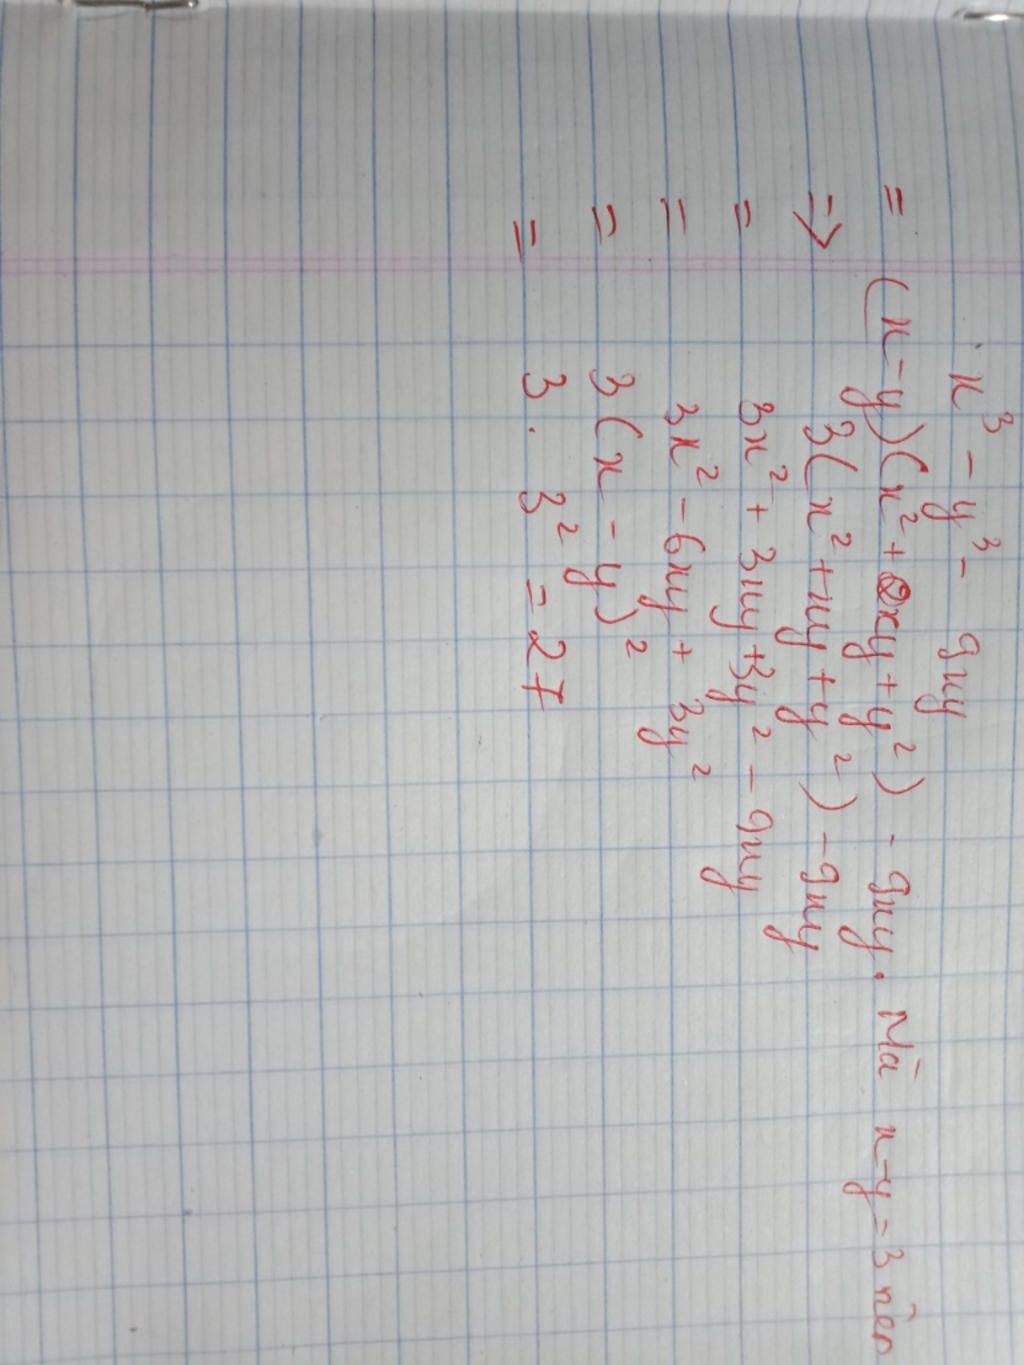 x³ - y³ - 9xy
= (x-y)(x²+xy+y²) - 9xy. Mà x-y=3 nên
=> 3(x²+xy+y²) - 9xy
= 3x² + 3xy + 3y² - 9xy
= 3x² - 6xy + 3y²
= 3(x-y)²
= 3. 3² = 27